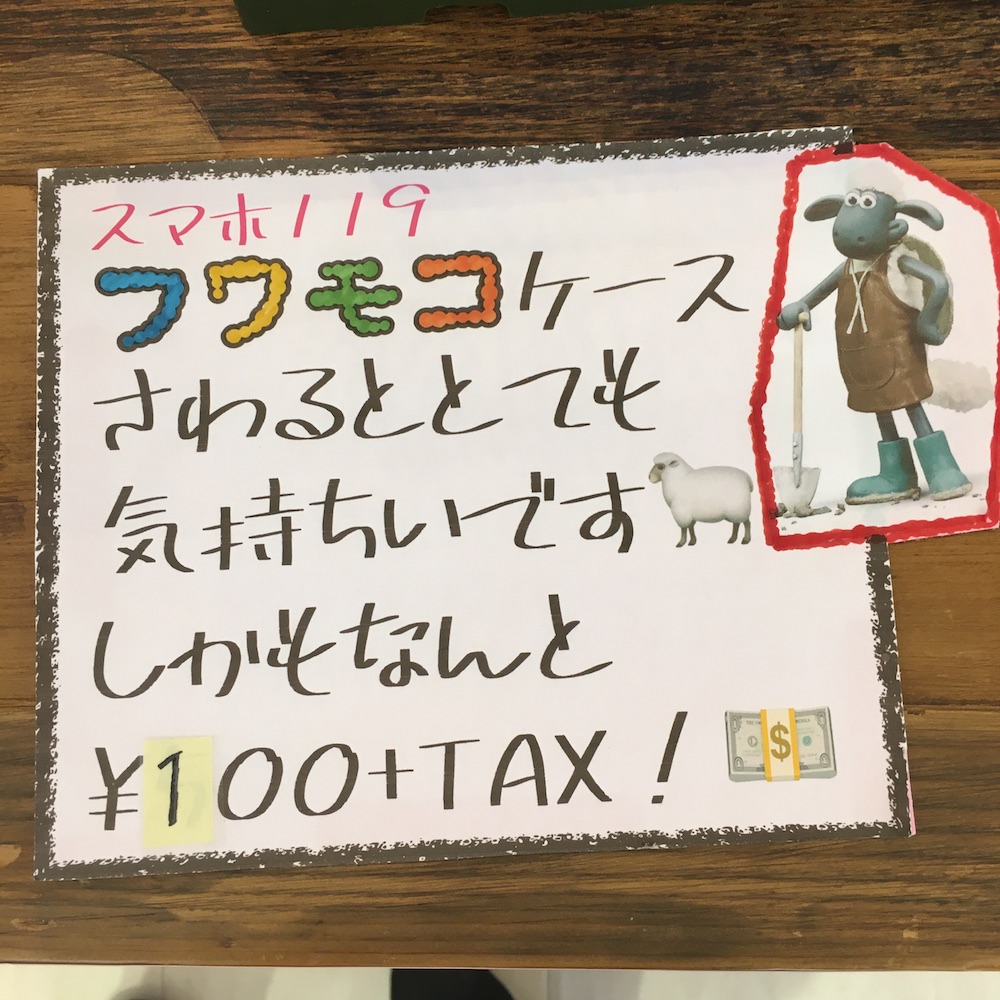 スマホ119
フワモコケース
さわるととても
気持ちいいです
しかもなんと
¥100+TAX!
$